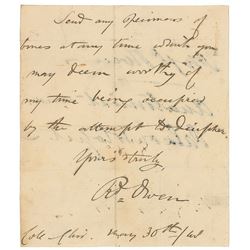 Send any specimens of
bones at any time which you
may deem worthy of
my time being occupied
by the attempt to decipher.
Yours truly,
Rd Owen
Coll. Chir. May 30th /